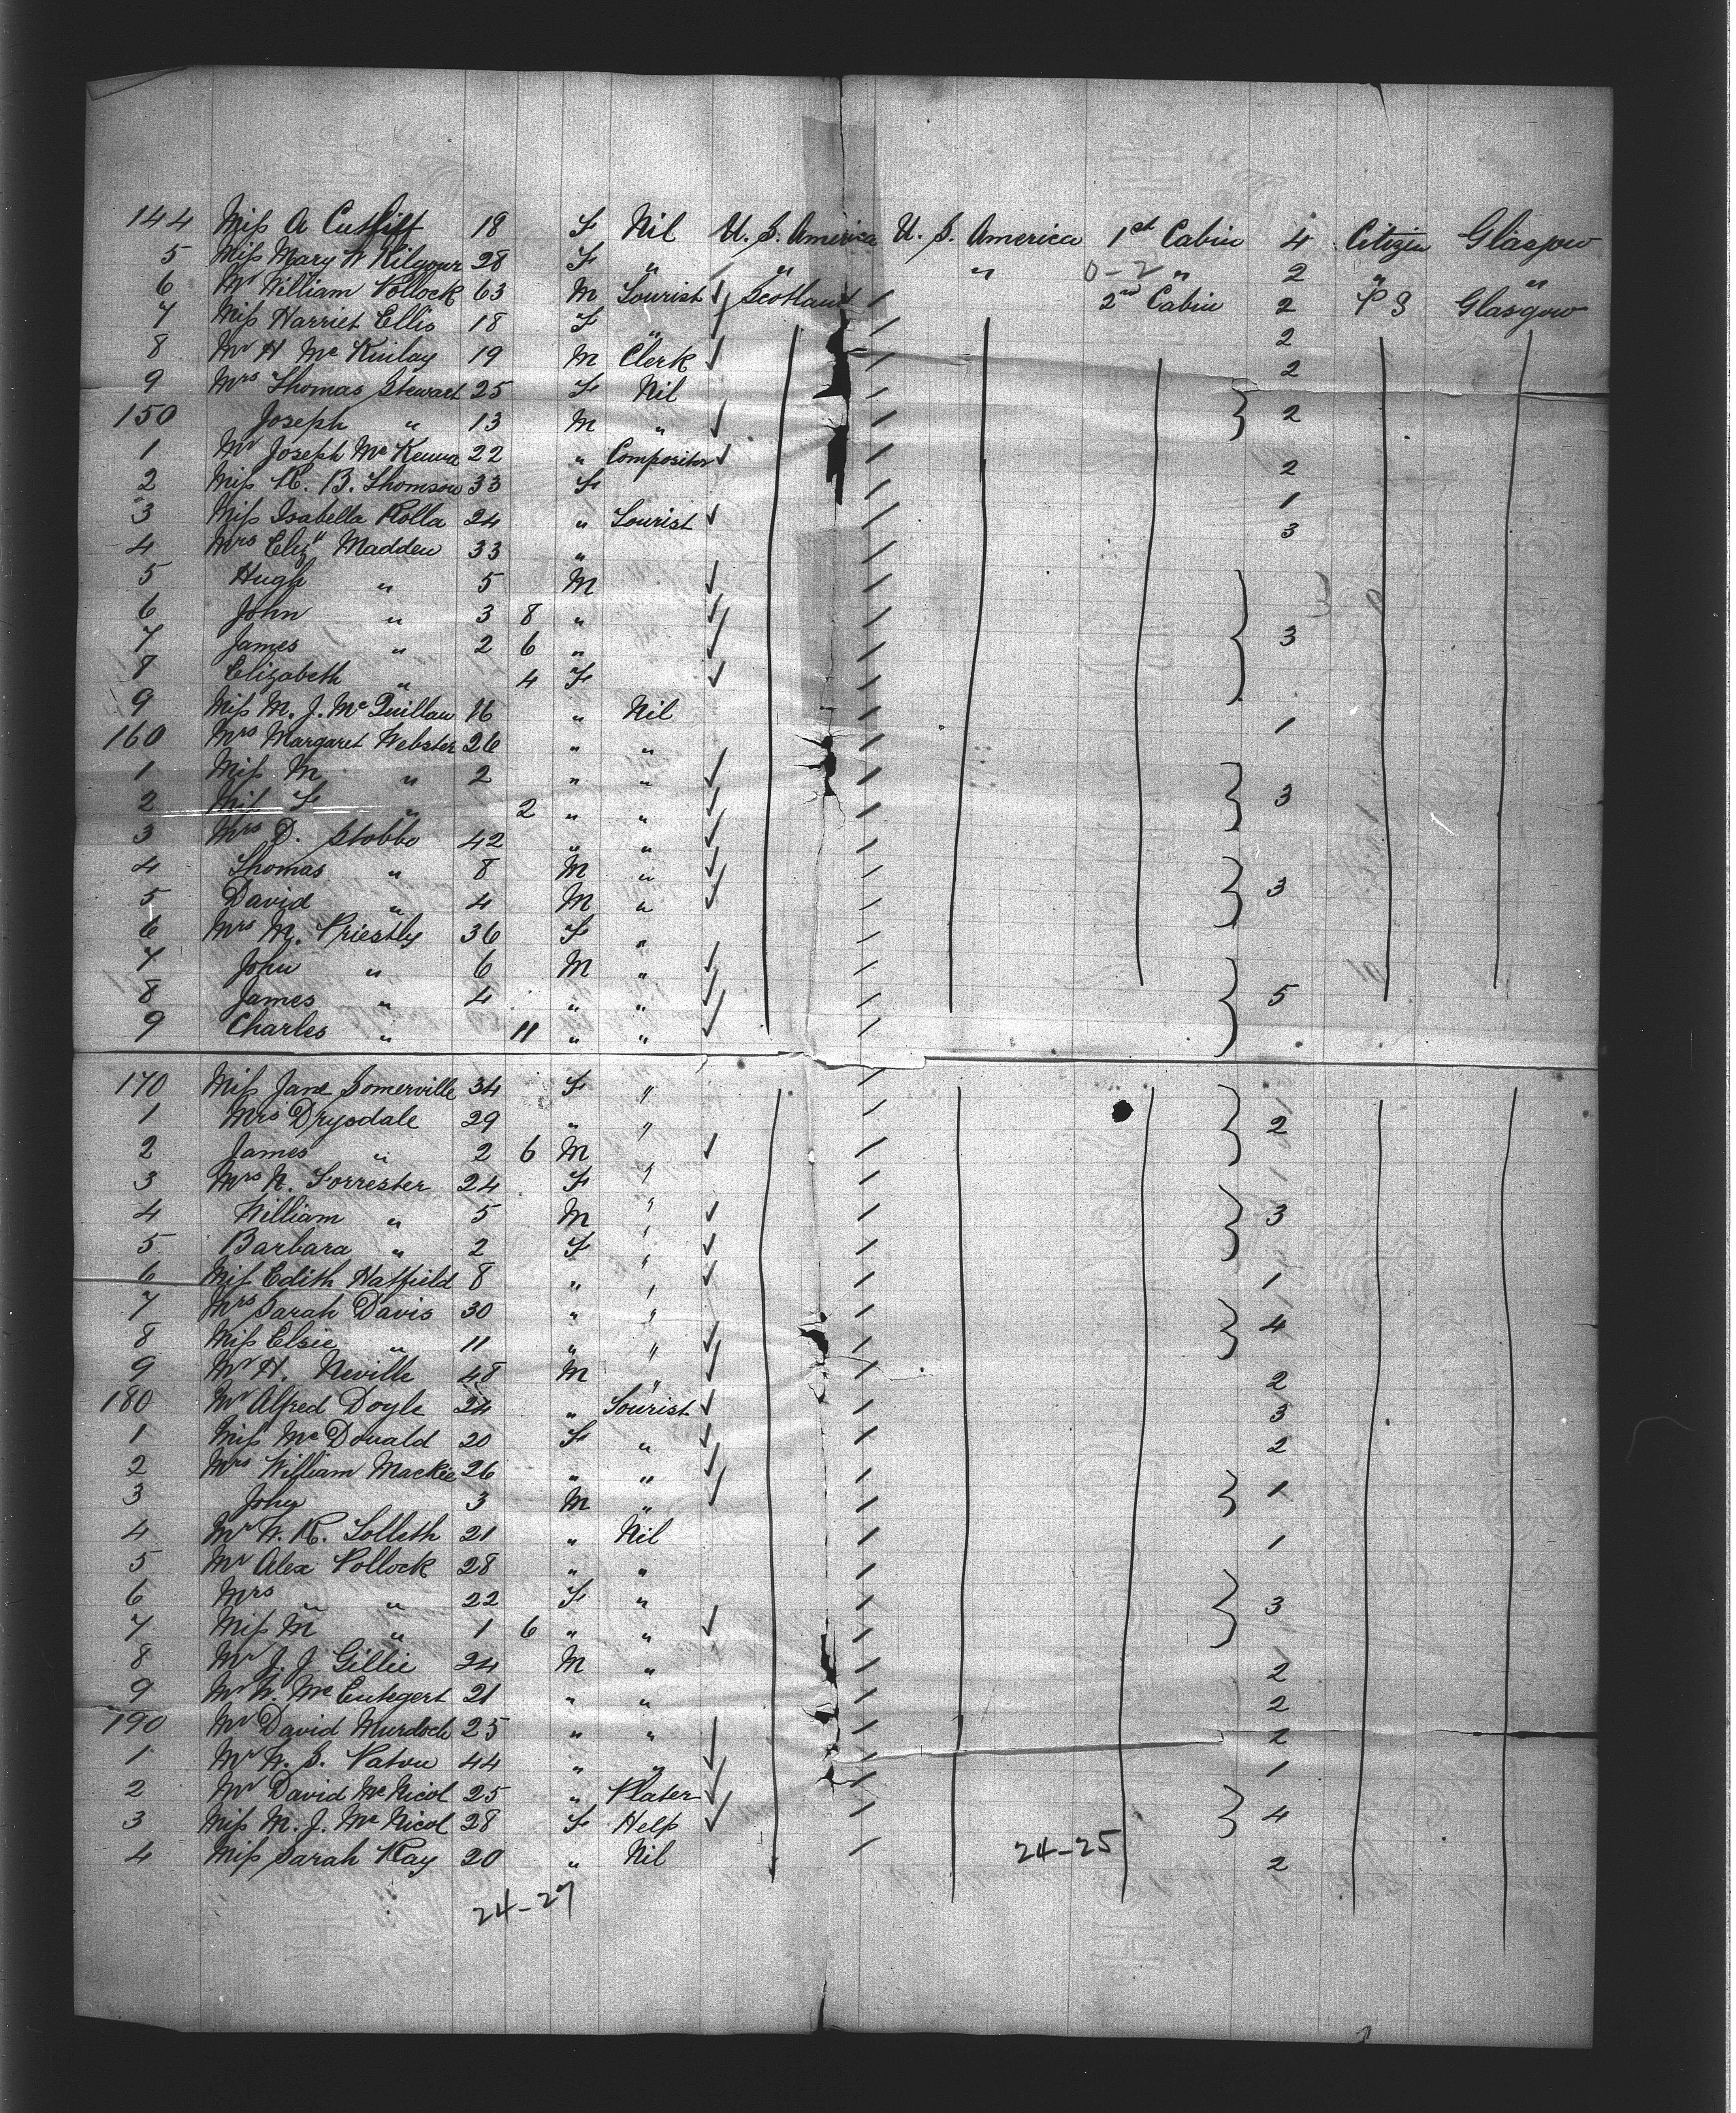 144 Miss A Cutliff 18 F Nil U. S. America U. S. America 1st Cabin 4 Citizen Glasgow
5 Miss Mary W Kilgour 28 F " " " 0-2 " 2 " "
6 Mr William Pollock 63 M Tourist Scotland 2nd Cabin 2 P S Glasgow
7 Miss Harriet Ellis 18 F " 2
8 Mr H Mc Kinlay 19 M Clerk 2
9 Mrs Thomas Stewart 25 F Nil
150 Joseph " 13 M " 2
1 Mr Joseph Mc Kenna 22 " Compositor 2
2 Miss R. B. Thomson 33 F 1
3 Miss Isabella Rolla 24 " Tourist 3
4 Mrs Eliz" Madden 33 "
5 Hugh " 5 M
6 John " 3 8 "
7 James " 2 6 " 3
8 Elizabeth " 4 F
9 Miss M. J. Mc Quillan 16 " Nil 1
160 Mrs Margaret Webster 26 " "
1 Miss M " 2 " "
2 Miss F " 2 " " 3
3 Mrs D. Stobbo 42 " "
4 Thomas " 8 M " 3
5 David " 4 M "
6 Mrs M. Priestly 36 F "
7 John " 6 M "
8 James " 4 " " 5
9 Charles " 11 " "
170 Miss Jane Somerville 34 F "
1 Mrs Drysdale 29 " " 2
2 James " 2 6 M "
3 Mrs N. Forrester 24 F "
4 William " 5 M " 3
5 Barbara " 2 F "
6 Miss Edith Hatfield 8 " " 1
7 Mrs Sarah Davis 30 " " 4
8 Miss Elsie " 11 " "
9 Mr H. Neville 48 M " 2
180 Mr Alfred Doyle 24 " Tourist 3
1 Miss Mc Donald 20 F " 2
2 Mrs William Mackie 26 " "
3 John 3 M " 1
4 Mr W. R. Tolleth 21 " Nil 1
5 Mr Alex Pollock 28 " "
6 Mrs " " 22 F " 3
7 Miss M " 1 6 " "
8 Mr J. J Gillie 24 M " 2
9 Mr W. Mc 21 " " 2
190 Mr David Murdoch 25 " " 2
1 Mr W. S. Paton 44 " " 1
2 Mr David Mc Nicol 25 " Plater
3 Miss M. J. Mc Nicol 28 F Help 4
4 Miss Sarah Kay 20 " Nil 24-25 2
24-27